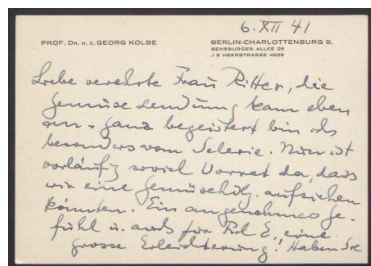 6. XII 41
PROF. DR. H. C. GEORG KOLBE
BERLIN-CHARLOTTENBURG 9,
SENSBURGER ALLEE 26
J 9 HEERSTRASSE 4228
Liebe verehrte Frau Ritter, die
Gemüsesendung kam eben
an - ganz begeistert bin ich
besonders vom Selerie. Nun ist
vorläufig soviel Vorrat da, dass
wir eine aufziehen
könnten. Ein angenehmes Ge-
fühl u. auch für eine
grosse Erleichterung! Haben Sie